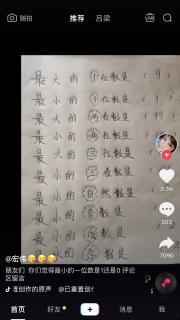 随拍
推荐
吕梁
最大的个位数是(9)
最小的个位数是(1)
最大的两位数是(99)
最小的两位数是(
最大的三位数是(
最小的三位数是(
最小的自然数是
最小的
数是
最小的
数是
最小的
数是
3.0w
303
7090
@宏伟
朋友们 你们觉得最小的一位数是1还是0 评论
区留言
创作的原声
@已重置创
首页
好友
消息
我